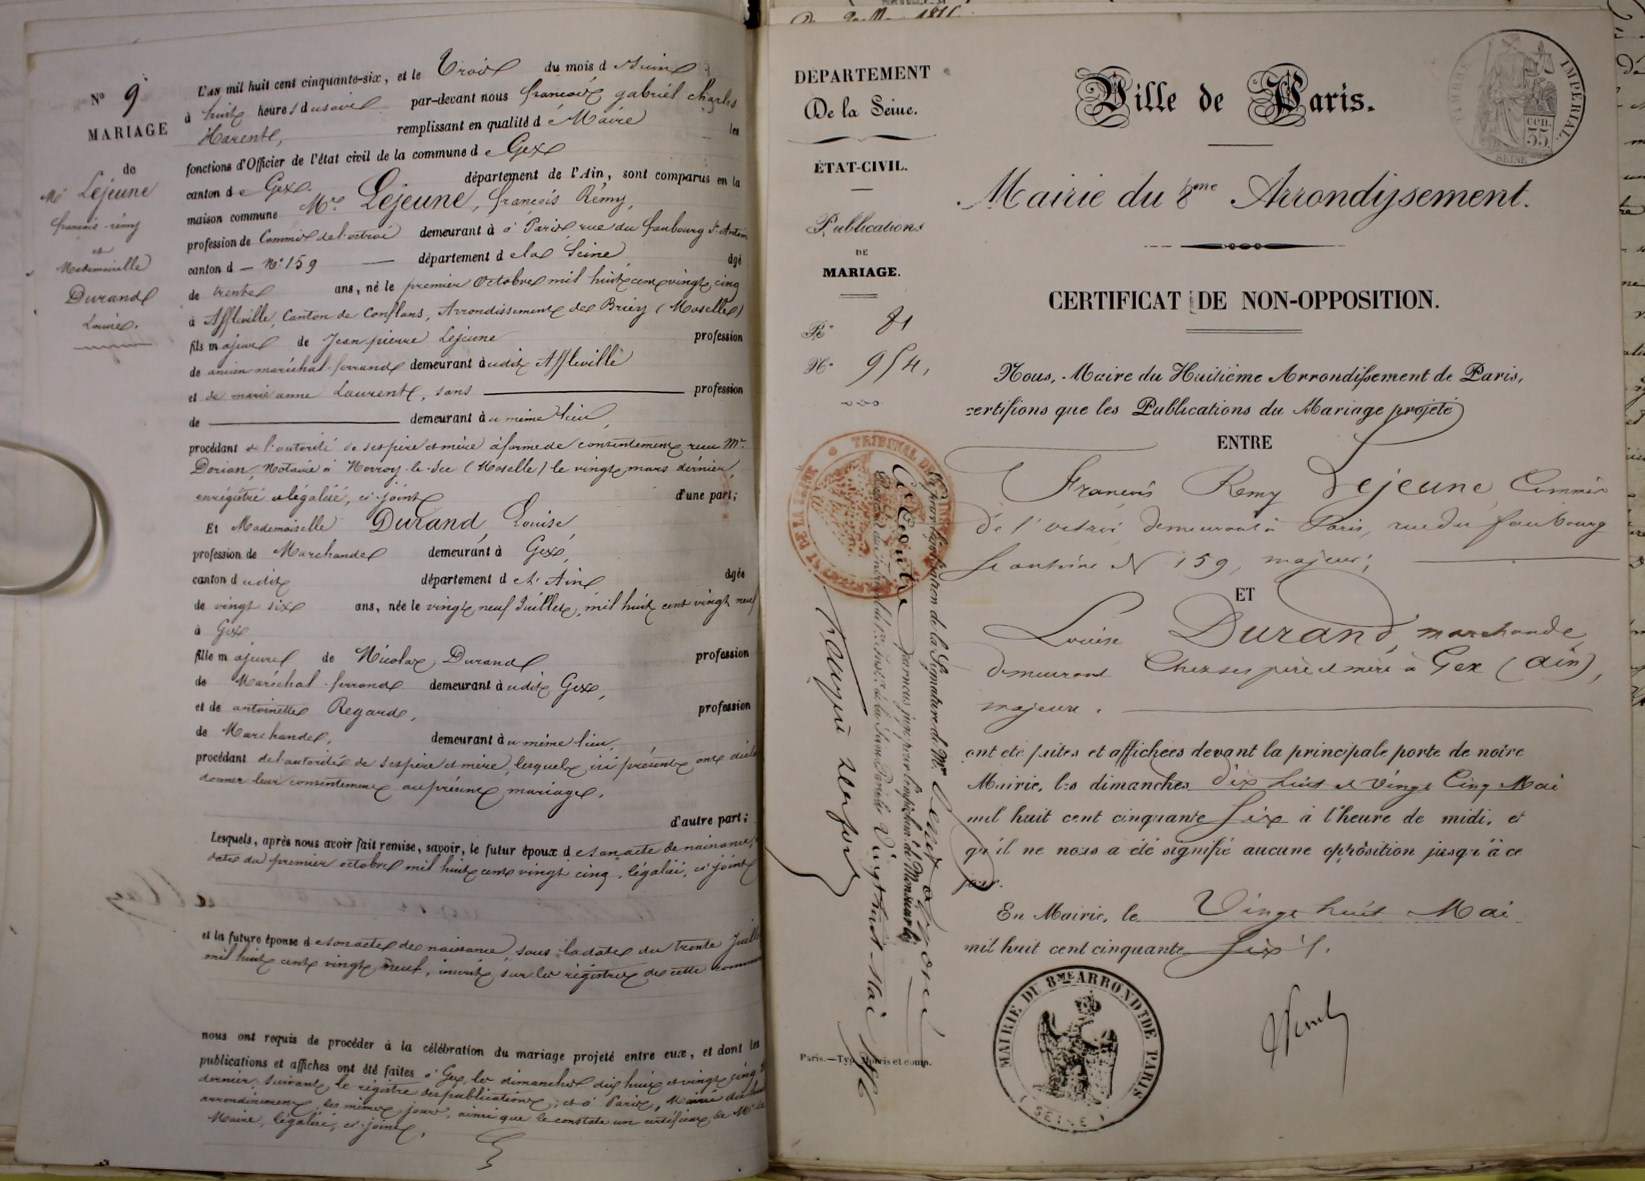 N° 9
MARIAGE
de
Mr Lejeune
françois rémy
et
Mademoiselle
Durand
Louise.
L'an mil huit cent cinquante-six, et le Trois du mois de Juin
à huit heures du soir par-devant nous françois gabriel Charles
Harent, remplissant en qualité de Maire les
fonctions d'Officier de l'état civil de la commune de Gex
canton de Gex. département de l'Ain, sont comparus en la
maison commune Mr Lejeune, françois Rémy,
profession de Commis de l'octroi demeurant à à Paris rue du faubourg St Antoine
canton d — N° 159 — département de la Seine âgé
de trente ans, né le premier Octobre mil huit cent vingt cinq
à Affleville, Canton de Conflans, Arrondissement de Briey (Moselle)
fils majeur de Jean pierre Lejeune profession
de ancien maréchal-ferrand demeurant audit Affleville
et de marie anne Laurent, sans profession
de demeurant au même lieu,
procédant de l'autorité de ses père et mère à forme de consentement reçu Mr
Dorian, Notaire à Norroy-le-Sec (Moselle) le vingt mars dernier,
enregistré et légalisé, ci-joint d'une part;
Et Mademoiselle Durand, Louise
profession de Marchande demeurant à Gex,
canton dudit département de l'Ain âgée
de vingt six ans, née le vingt neuf Juillet, mil huit cent vingt neuf
à Gex
fille majeure de Nicolas Durand profession
de Maréchal-ferrand demeurant audit Gex,
et de antoinette Regard, profession
de Marchande, demeurant au même lieu,
procédant de l'autorité de ses père et mère, lesquels ici présents ont déclaré
donner leur consentement au présent mariage.
d'autre part;
Lesquels, après nous avoir fait remise, savoir, le futur époux de son acte de naissance,
date du premier octobre mil huit cent vingt cinq, légalisé, ci joint
et la future épouse de son acte de naissance, sous la date du trente Juillet
mil huit cent vingt neuf, inscrit sur les registres de cette commune
nous ont requis de procéder à la célébration du mariage projeté entre eux, et dont les
publications et affiches ont été faites à Gex les dimanches dix huit et vingt cinq
dernier, suivant le registre des publications, et à Paris, Mairie du
arrondissement les mêmes jours, ainsi que le constate un certificat de Mr le
Maire, légalisé, ci-joint,
DÉPARTEMENT
De la Seine.
ÉTAT-CIVIL.
Publications
DE
MARIAGE.
R° 81
N° 954,
TIMBRE IMPÉRIAL
35 CEN.
SEINE
Ville de Paris.
Mairie du 8me Arrondissement.
CERTIFICAT DE NON-OPPOSITION.
Nous, Maire du Huitième Arrondissement de Paris,
certifions que les Publications du Mariage projeté
ENTRE
François Remy Lejeune, Commis
de l'octroi, demeurant à Paris, rue du faubourg
St antoine N° 159, majeur;
ET
Louise Durand, marchande
demeurant Chez ses père et mère à Gex (Ain),
majeure.
ont été faites et affichées devant la principale porte de notre
Mairie, les dimanches dix huit et vingt Cinq Mai
mil huit cent cinquante Six à l'heure de midi, et
qu'il ne nous a été signifié aucune opposition jusqu'à ce
jour.
En Mairie, le Vingt huit Mai
mil huit cent cinquante Six
MAIRIE DU 8ME ARRONDT DE PARIS
(SEINE)
Vu pour légalisation de la Signature de Mr
par nous juge pour l'empêchement de Monsieur le
Président du Tribunal de 1re Inst. de la Seine Paris le Vingt huit Mai 1856